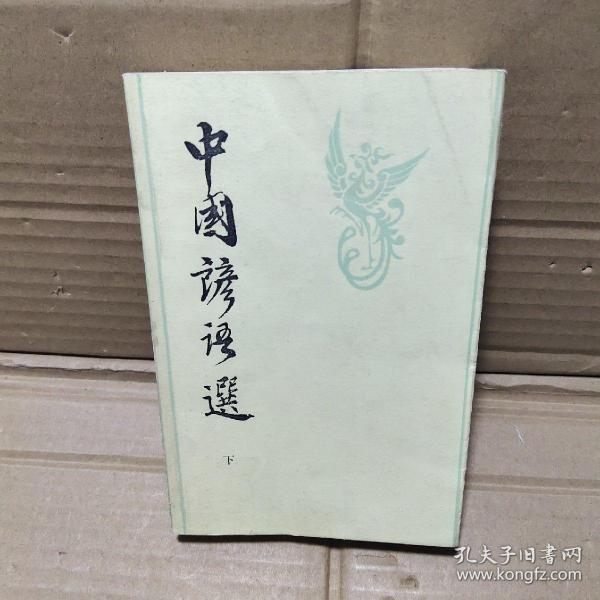 中國諺语選
下
孔夫子旧書网
www.kongfz.com